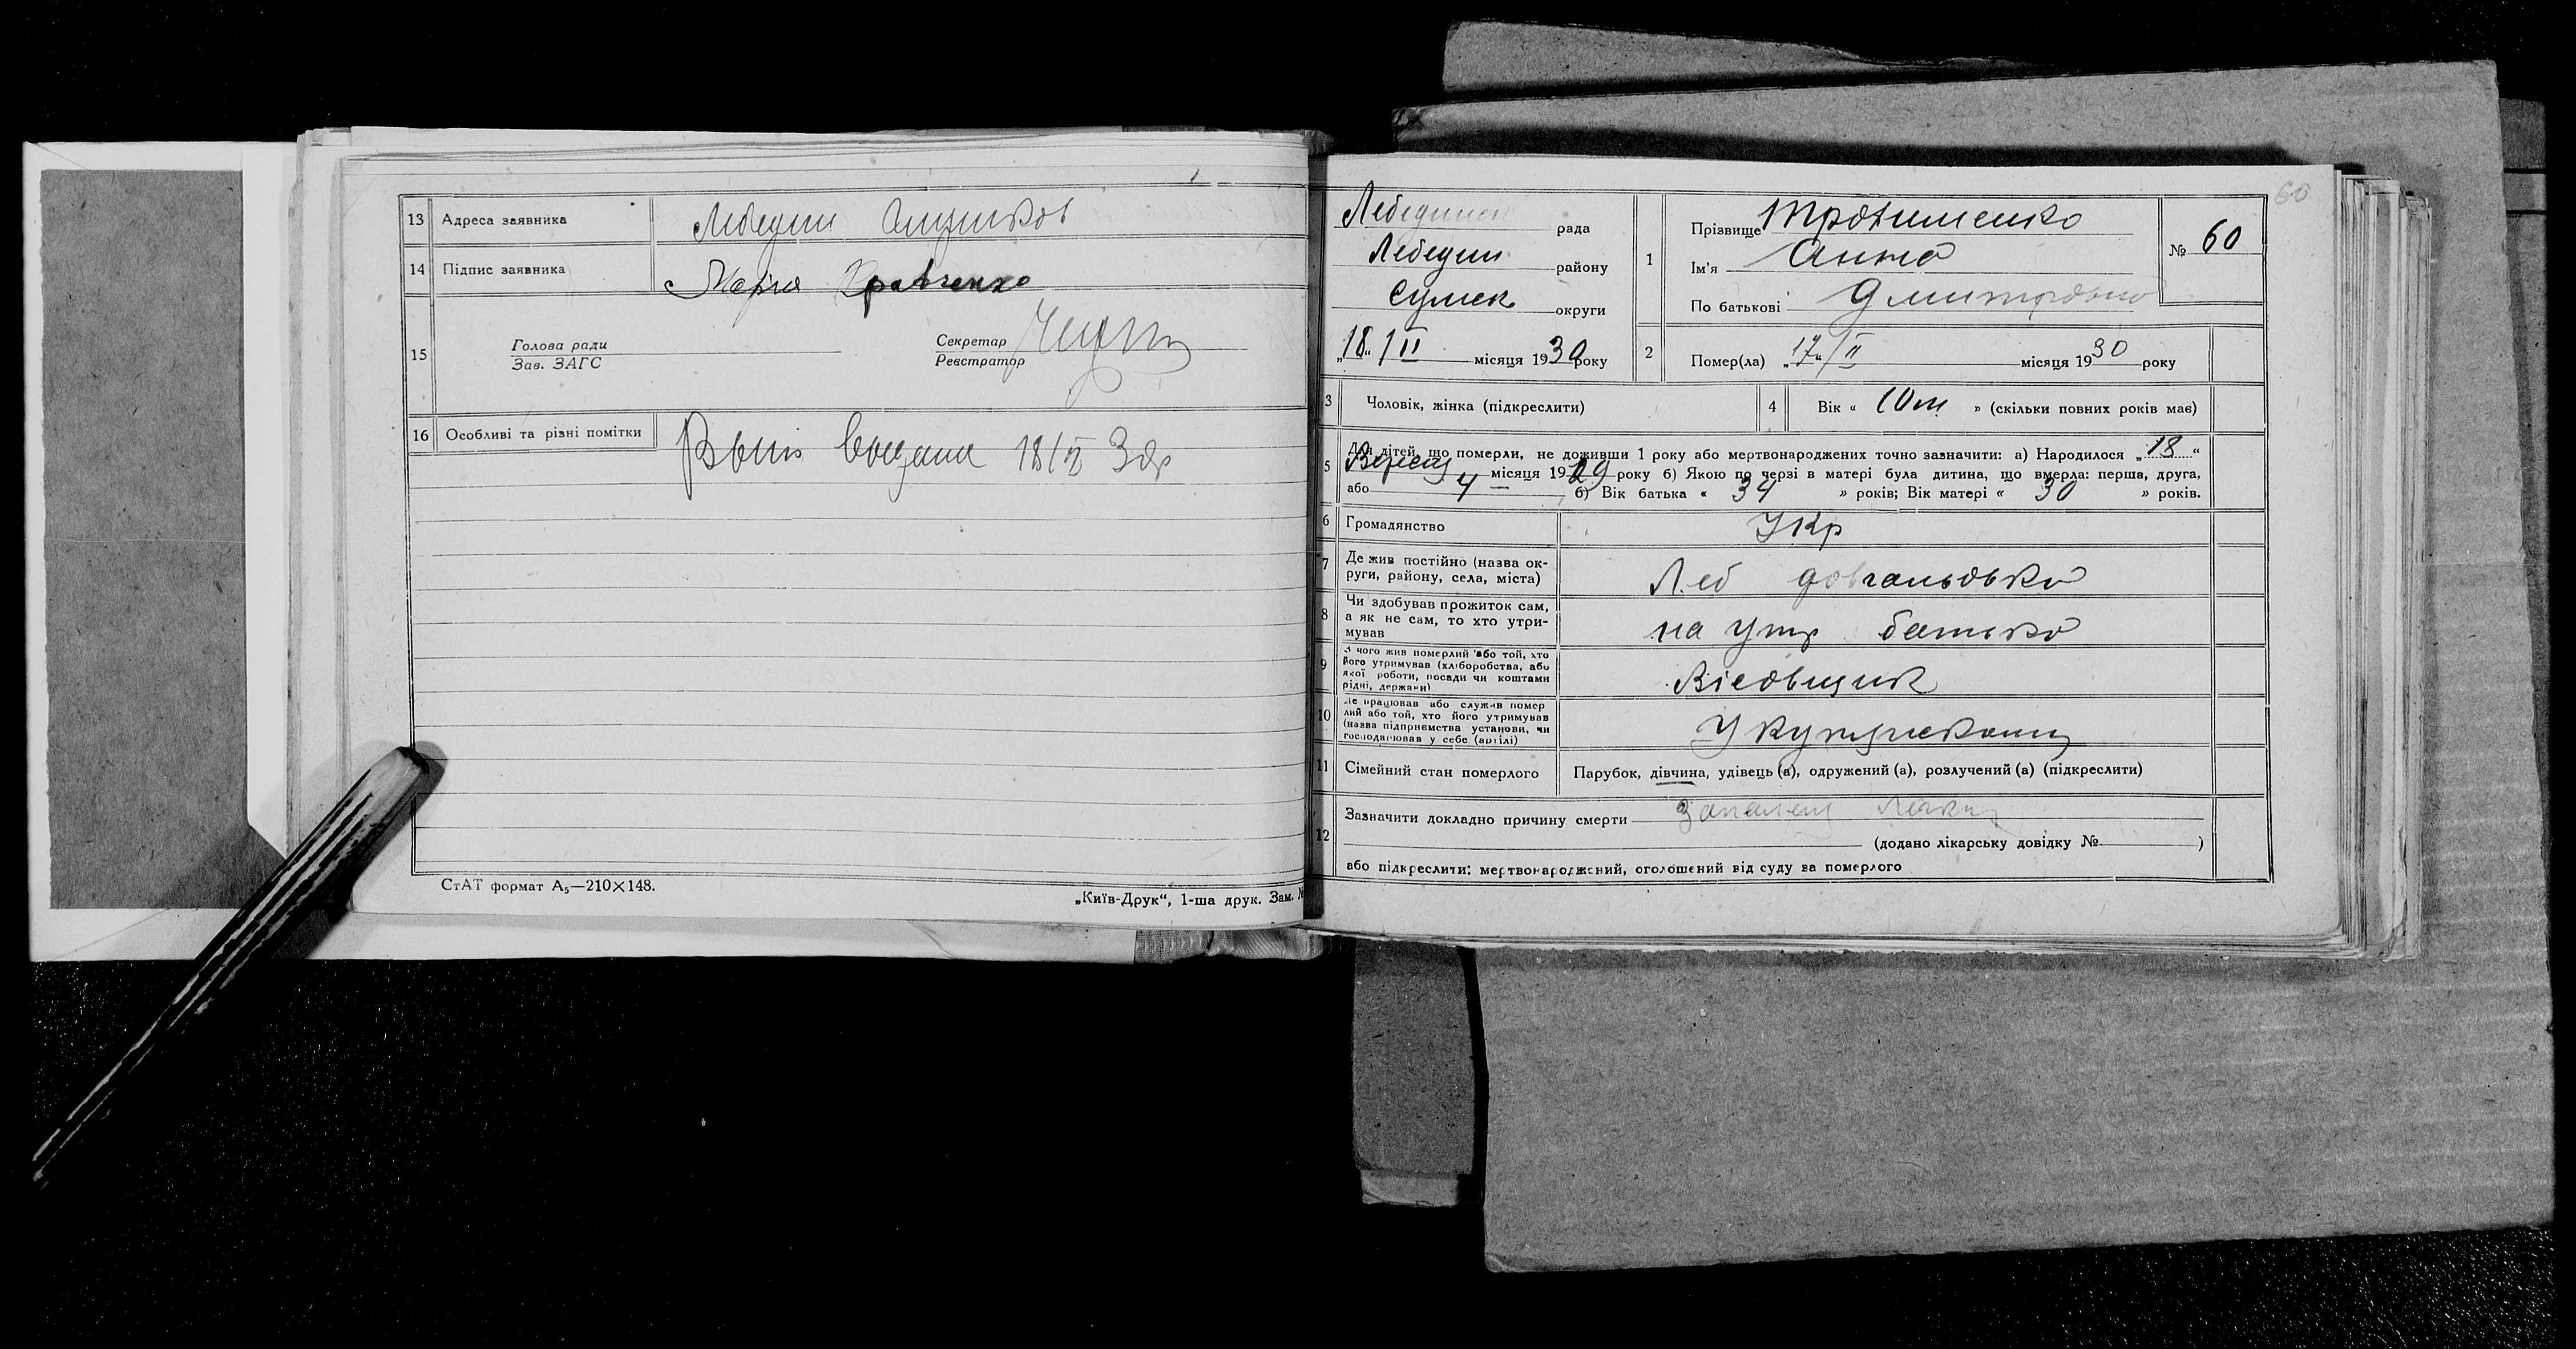 13 Адреса заявника Лебедин
14 Підпис заявника Марія Кравченко
15 Голова ради
Зав. ЗАГС
Секретар
Реєстратор
16 Особливі та різні помітки 18/II
СтАТ формат А₅—210×148.
„Київ-Друк“, 1-ша друк. Зам. №
60
Лебединск рада
Лебедин району
Сумск округи
„18“/II місяця 1930 року
1 Прізвище Трофименко
Ім'я Анна
По батькові Дмитровна
№ 60
2 Помер(ла) „17“/II місяця 1930 року
3 Чоловік, жінка (підкреслити)
4 Вік « » (скільки повних років має)
5 Для дітей, що померли, не доживши 1 року або мертвонароджених точно зазначити: а) Народилося „18“
місяця 1929 року б) Якою по черзі в матері була дитина, що вмерла: перша, друга,
або 4 б) Вік батька « 34 » років; Вік матері « 30 » років.
6 Громадянство Укр
7 Де жив постійно (назва ок-
руги, району, села, міста) Леб
8 Чи здобував прожиток сам,
а як не сам, то хто утри-
мував на утр батька
9 З чого жив померлий або той, хто
його утримував (хліборобства, або
якої роботи, посади чи коштами
рідні, держави)
10 Де працював або служив помер
лий або той, хто його утримував
(назва підприємства установи, чи
господарював у себе (артілі)
11 Сімейний стан померлого Парубок, дівчина, удівець (а), одружений (а), розлучений (а) (підкреслити)
12 Зазначити докладно причину смерти
(додано лікарську довідку № )
або підкреслити: мертвонароджений, оголошений від суду за померлого